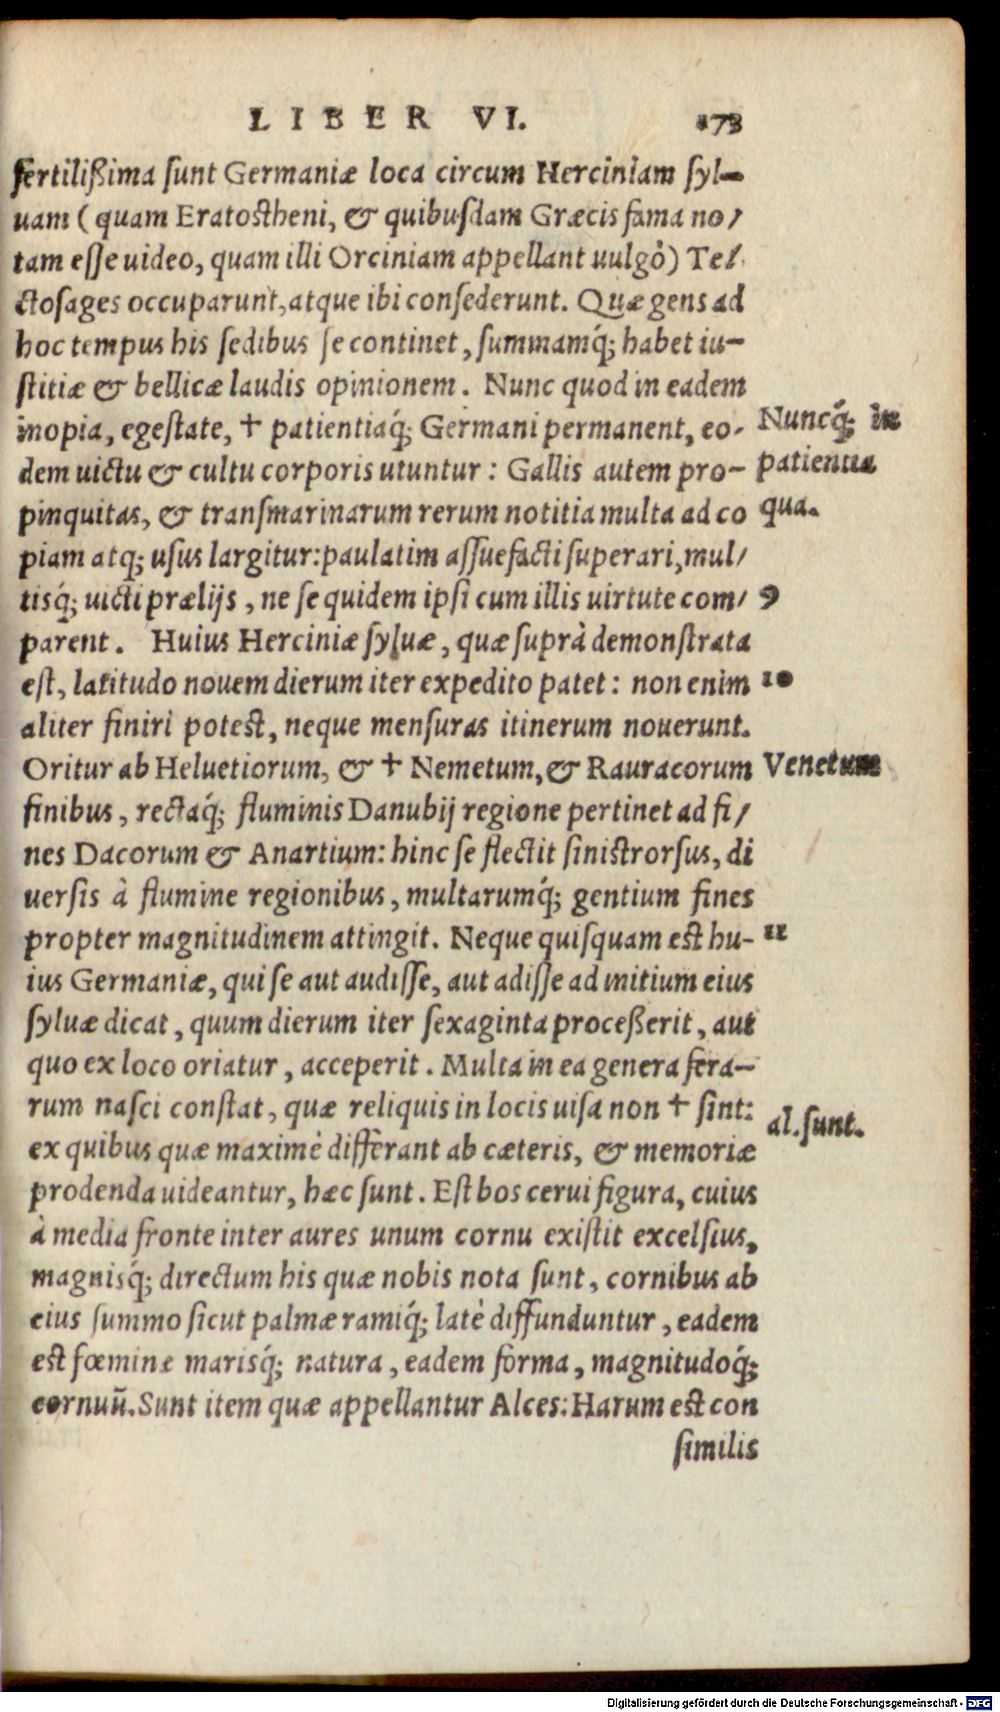 LIBER VI. 173
fertilißima sunt Germaniæ loca circum Herciniam syl-
uam (quam Eratostheni, & quibusdam Græcis fama no/
tam esse uideo, quam illi Orciniam appellant uulgò) Te/
ctosages occuparunt, atque ibi consederunt. Quæ gens ad
hoc tempus his sedibus se continet, summamq́; habet iu-
stitiæ & bellicæ laudis opinionem. Nunc quod in eadem
inopia, egestate, † patientiaq́; Germani permanent, eo-
Nuncq́; in
dem uictu & cultu corporis utuntur: Gallis autem pro-
patientia
pinquitas, & transmarinarum rerum notitia multa ad co
qua.
piam atq; usus largitur: paulatim assuefacti superari, mul/
tisq́; uicti prælijs, ne se quidem ipsi cum illis uirtute com/
9
parent. Huius Herciniæ syluæ, quæ suprà demonstrata
est, latitudo nouem dierum iter expedito patet: non enim
10
aliter finiri potest, neque mensuras itinerum nouerunt.
Oritur ab Heluetiorum, & † Nemetum, & Rauracorum
Venetum
finibus, rectaq́; fluminis Danubij regione pertinet ad fi/
nes Dacorum & Anartium: hinc se flectit sinistrorsus, di
uersis à flumine regionibus, multarumq́; gentium fines
propter magnitudinem attingit. Neque quisquam est hu-
11
ius Germaniæ, qui se aut audisse, aut adisse ad initium eius
syluæ dicat, quum dierum iter sexaginta proceßerit, aut
quo ex loco oriatur, acceperit. Multa in ea genera fera-
rum nasci constat, quæ reliquis in locis uisa non † sint:
al. sunt.
ex quibus quæ maximè differant ab cæteris, & memoriæ
prodenda uideantur, hæc sunt. Est bos cerui figura, cuius
à media fronte inter aures unum cornu existit excelsius,
magnisq́; directum his quæ nobis nota sunt, cornibus ab
eius summo sicut palmæ ramiq́; latè diffunduntur, eadem
est fœminæ marisq́; natura, eadem forma, magnitudoq́;
cornuũ. Sunt item quæ appellantur Alces: Harum est con
similis
Digitalisierung gefördert durch die Deutsche Forschungsgemeinschaft - DFG